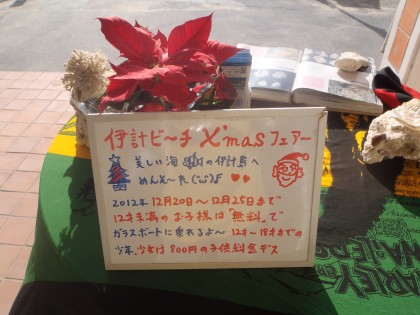 伊計ビ〜チ X'mas フェアー
美しい海の伊計島へ
めんそ〜れ
2012年 12月20日〜12月25日まで
12才未満のお子様は「無料」で
ガラスボートに乗れるよ〜 12才〜18才までの
少年、少女は800円の子供料金デス